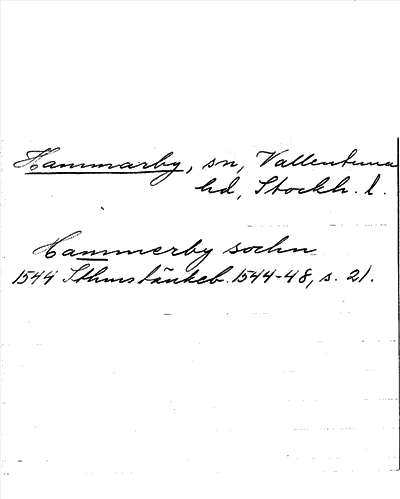 Hammarby, sn, Vallentuna
hd, Stockh. l.
Hammerby sochn
1544 Sthms tänkeb. 1544-48, s. 21.